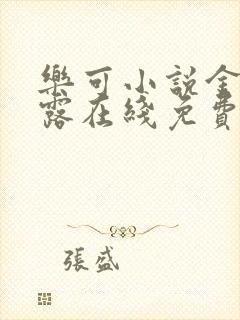 樂可小說金
露在綫免費
張盛